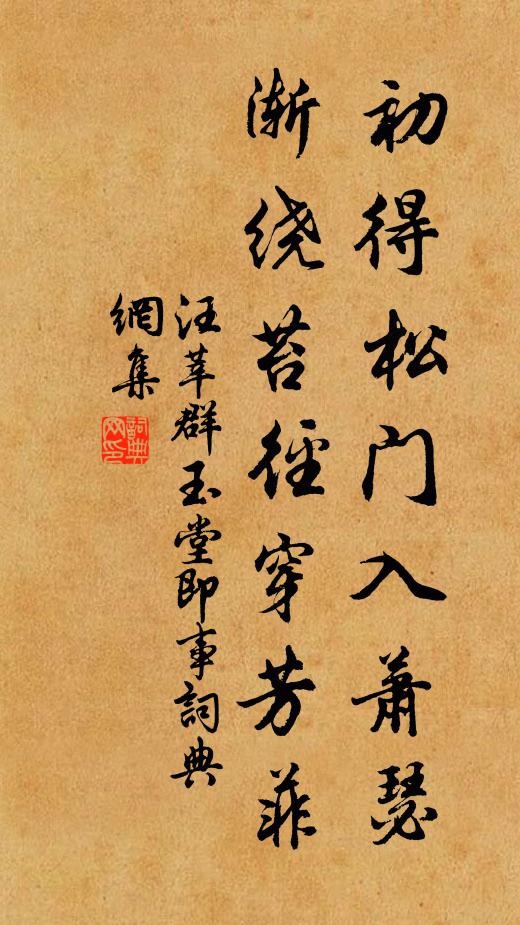 初得松门入萧瑟
渐绕苔径穿芳菲
汪莘群玉堂即事詞典
網集
詞典
网印